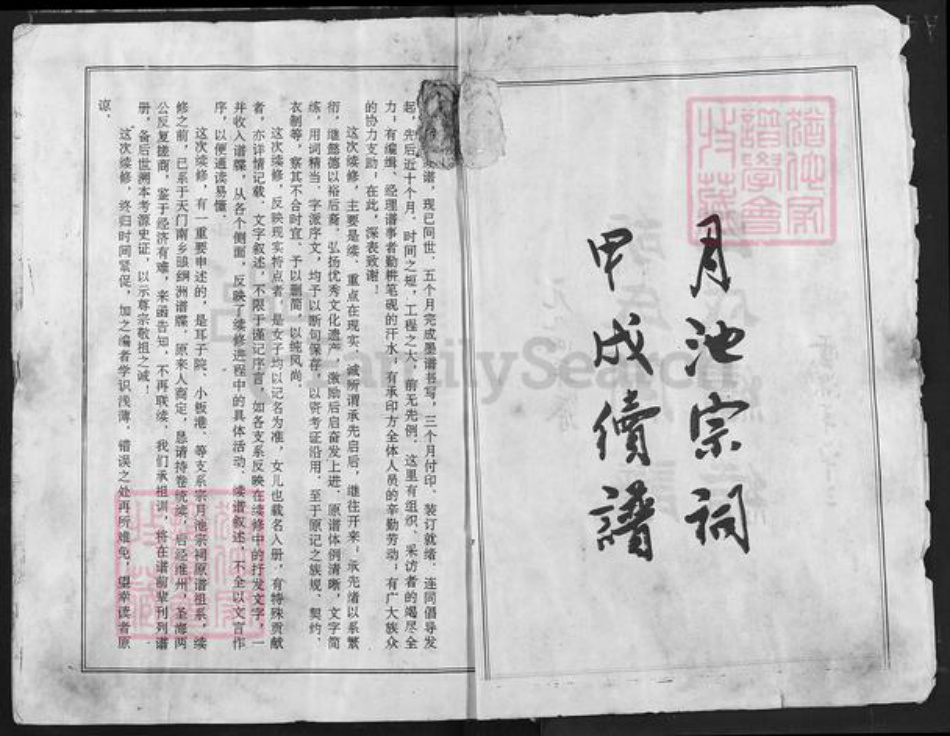 月池宗祠
甲戌續譜
谱，现已问世，五个月完成墨谱书写，三个月付印、装订就绪。连同倡导发
起，先后近十个月，时间之短，工程之大，前无先例。这里有组织、采访者的竭尽全
力；有编缉、经理谱事者勤耕笔砚的汗水，有承印方全体人员的辛勤劳动；有广大族众
的协力支助；在此，深表致谢！
这次续修，主要是续，重点在现实，诚所谓承先启后，继往开来；承先绪以系繁
衍，继懿德以裕后裔。弘扬优秀文化遗产，激励后启奋发上进。原谱体例清晰，文字简
练，用词精当，字派序文，均予以断句保存，以资考证沿用，至于原记之族规、契约、
衣制等，察其不合时宜，予以删简，以纯风尚。
这次续修，反映现实特点者，是女子均以记名为准，女儿也载名入册，有特殊贡献
者，亦详情记载，文字叙述，不限于谨记序言，如各支系反映在续修中的抒发文字，一
并收入谱牒，从各个侧面，反映了续修进程中的具体活动。续谱叙述，不全以文言作
序，以便通读易懂。
这次续修，有一重要申述的，是耳子院、小板港、等支系宗月池宗祠原谱祖系，续
修之前，已系于天门南乡 洲谱牒，原来人商定，恳请持卷统续，后经维州，圣海两
公反复搓商，鉴于经济有难，来函告知，不再联续，我们承祖训，将在谱前辈刊列谱
册，备后世溯本考源史证，以示尊宗敬祖之诚！
这次续修，终归时间紧促，加之编者学识浅薄，错误之处再所难免，望幸读者原
谅。
FamilySearch